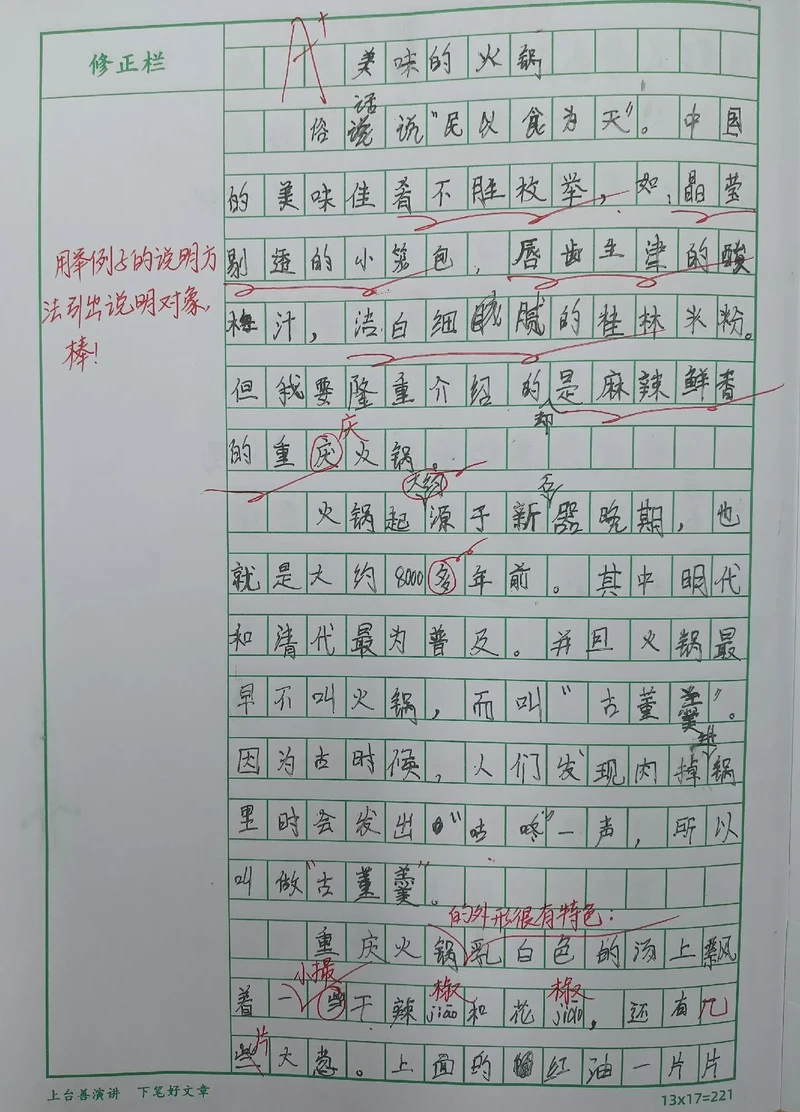 修正栏
A+
美味的火锅
俗话说"民以食为天"。中国
的美味佳肴不胜枚举,如,晶莹
剔透的小笼包,唇齿生津的酸
梅汁,洁白细腻的桂林米粉。
但我要隆重介绍的却是麻辣鲜香
的重庆火锅。
庆
用举例子的说明方
法引出说明对象,
棒!
火锅起源于新石器晚期,也
大约
就是大约8000多年前。其中明代
和清代最为普及。并且火锅最
早不叫火锅,而叫"古董羹"。
因为古时候,人们发现肉掉进锅
里时会发出"咕咚"一声,所以
叫做"古董羹"。
的外形很有特色:
重庆火锅乳白色的汤上飘
小撮 椒 椒
着一些干辣jiāo和花jiāo,还有几
片
些大葱。上面的红油一片片
上台善演讲 下笔好文章
13x17=221